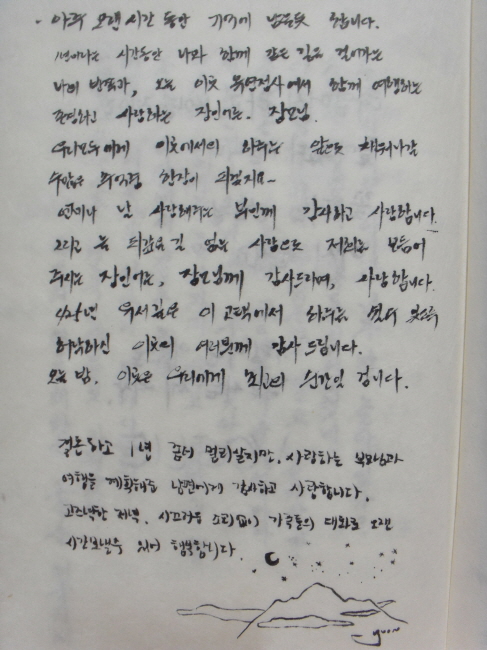 · 아주 오랜 시간 동안 기억에 남을듯 합니다.
1년이라는 시간동안 나와 함께 같은 길을 걸어가는
나의 반쪽과, 오늘 이곳 에서 함께 여행하는
존경하고 사랑하는 장인어른. 장모님.
우리모두에게 이곳에서의 하루는 앞으로 채워나갈
수많은 추억중 한장이 되겠지요~
언제나 날 사랑해주는 부인께 감사하고 사랑합니다.
그리고 늘 깊은 사랑으로 저희를 보듬어
주시는 장인어른, 장모님께 감사드리며, 사랑합니다.
유서깊은 이 고택에서 하루를 보낼수 있도록
허락하신 이곳의 여러분께 감사 드립니다.
오늘 밤. 이곳은 우리에게 최고의 순간일 겁니다.
결혼하고 1년 좀더 멀리살지만. 사랑하는 부모님과
여행을 계획해준 남편에게 감사하고 사랑합니다.
고즈넉한 저녁. 시끄러운 소리없이 가족들의 대화로 오랜
시간보낼수 있어 행복합니다.
yoon